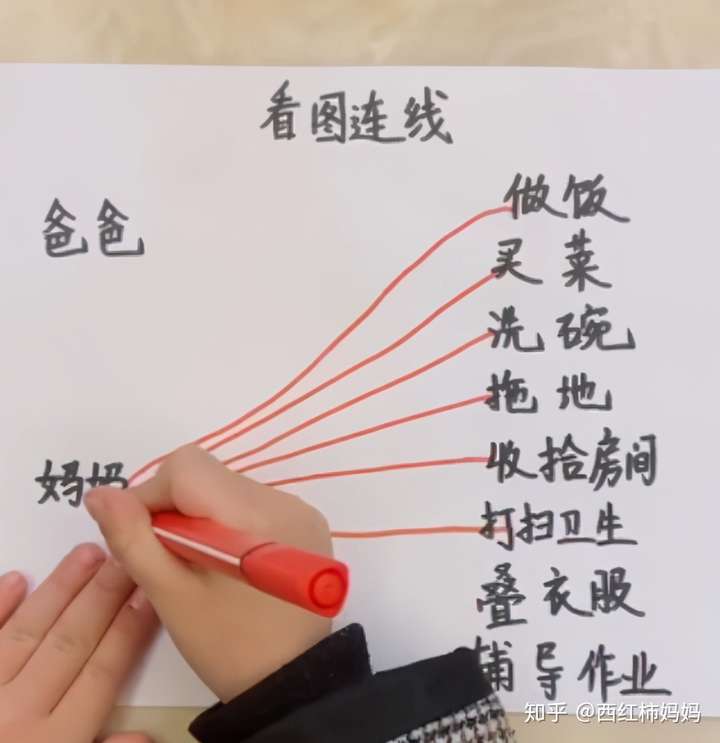 看图连线
爸爸
做饭
买菜
洗碗
拖地
收拾房间
妈妈
打扫卫生
叠衣服
辅导作业
知乎 @西红柿妈妈